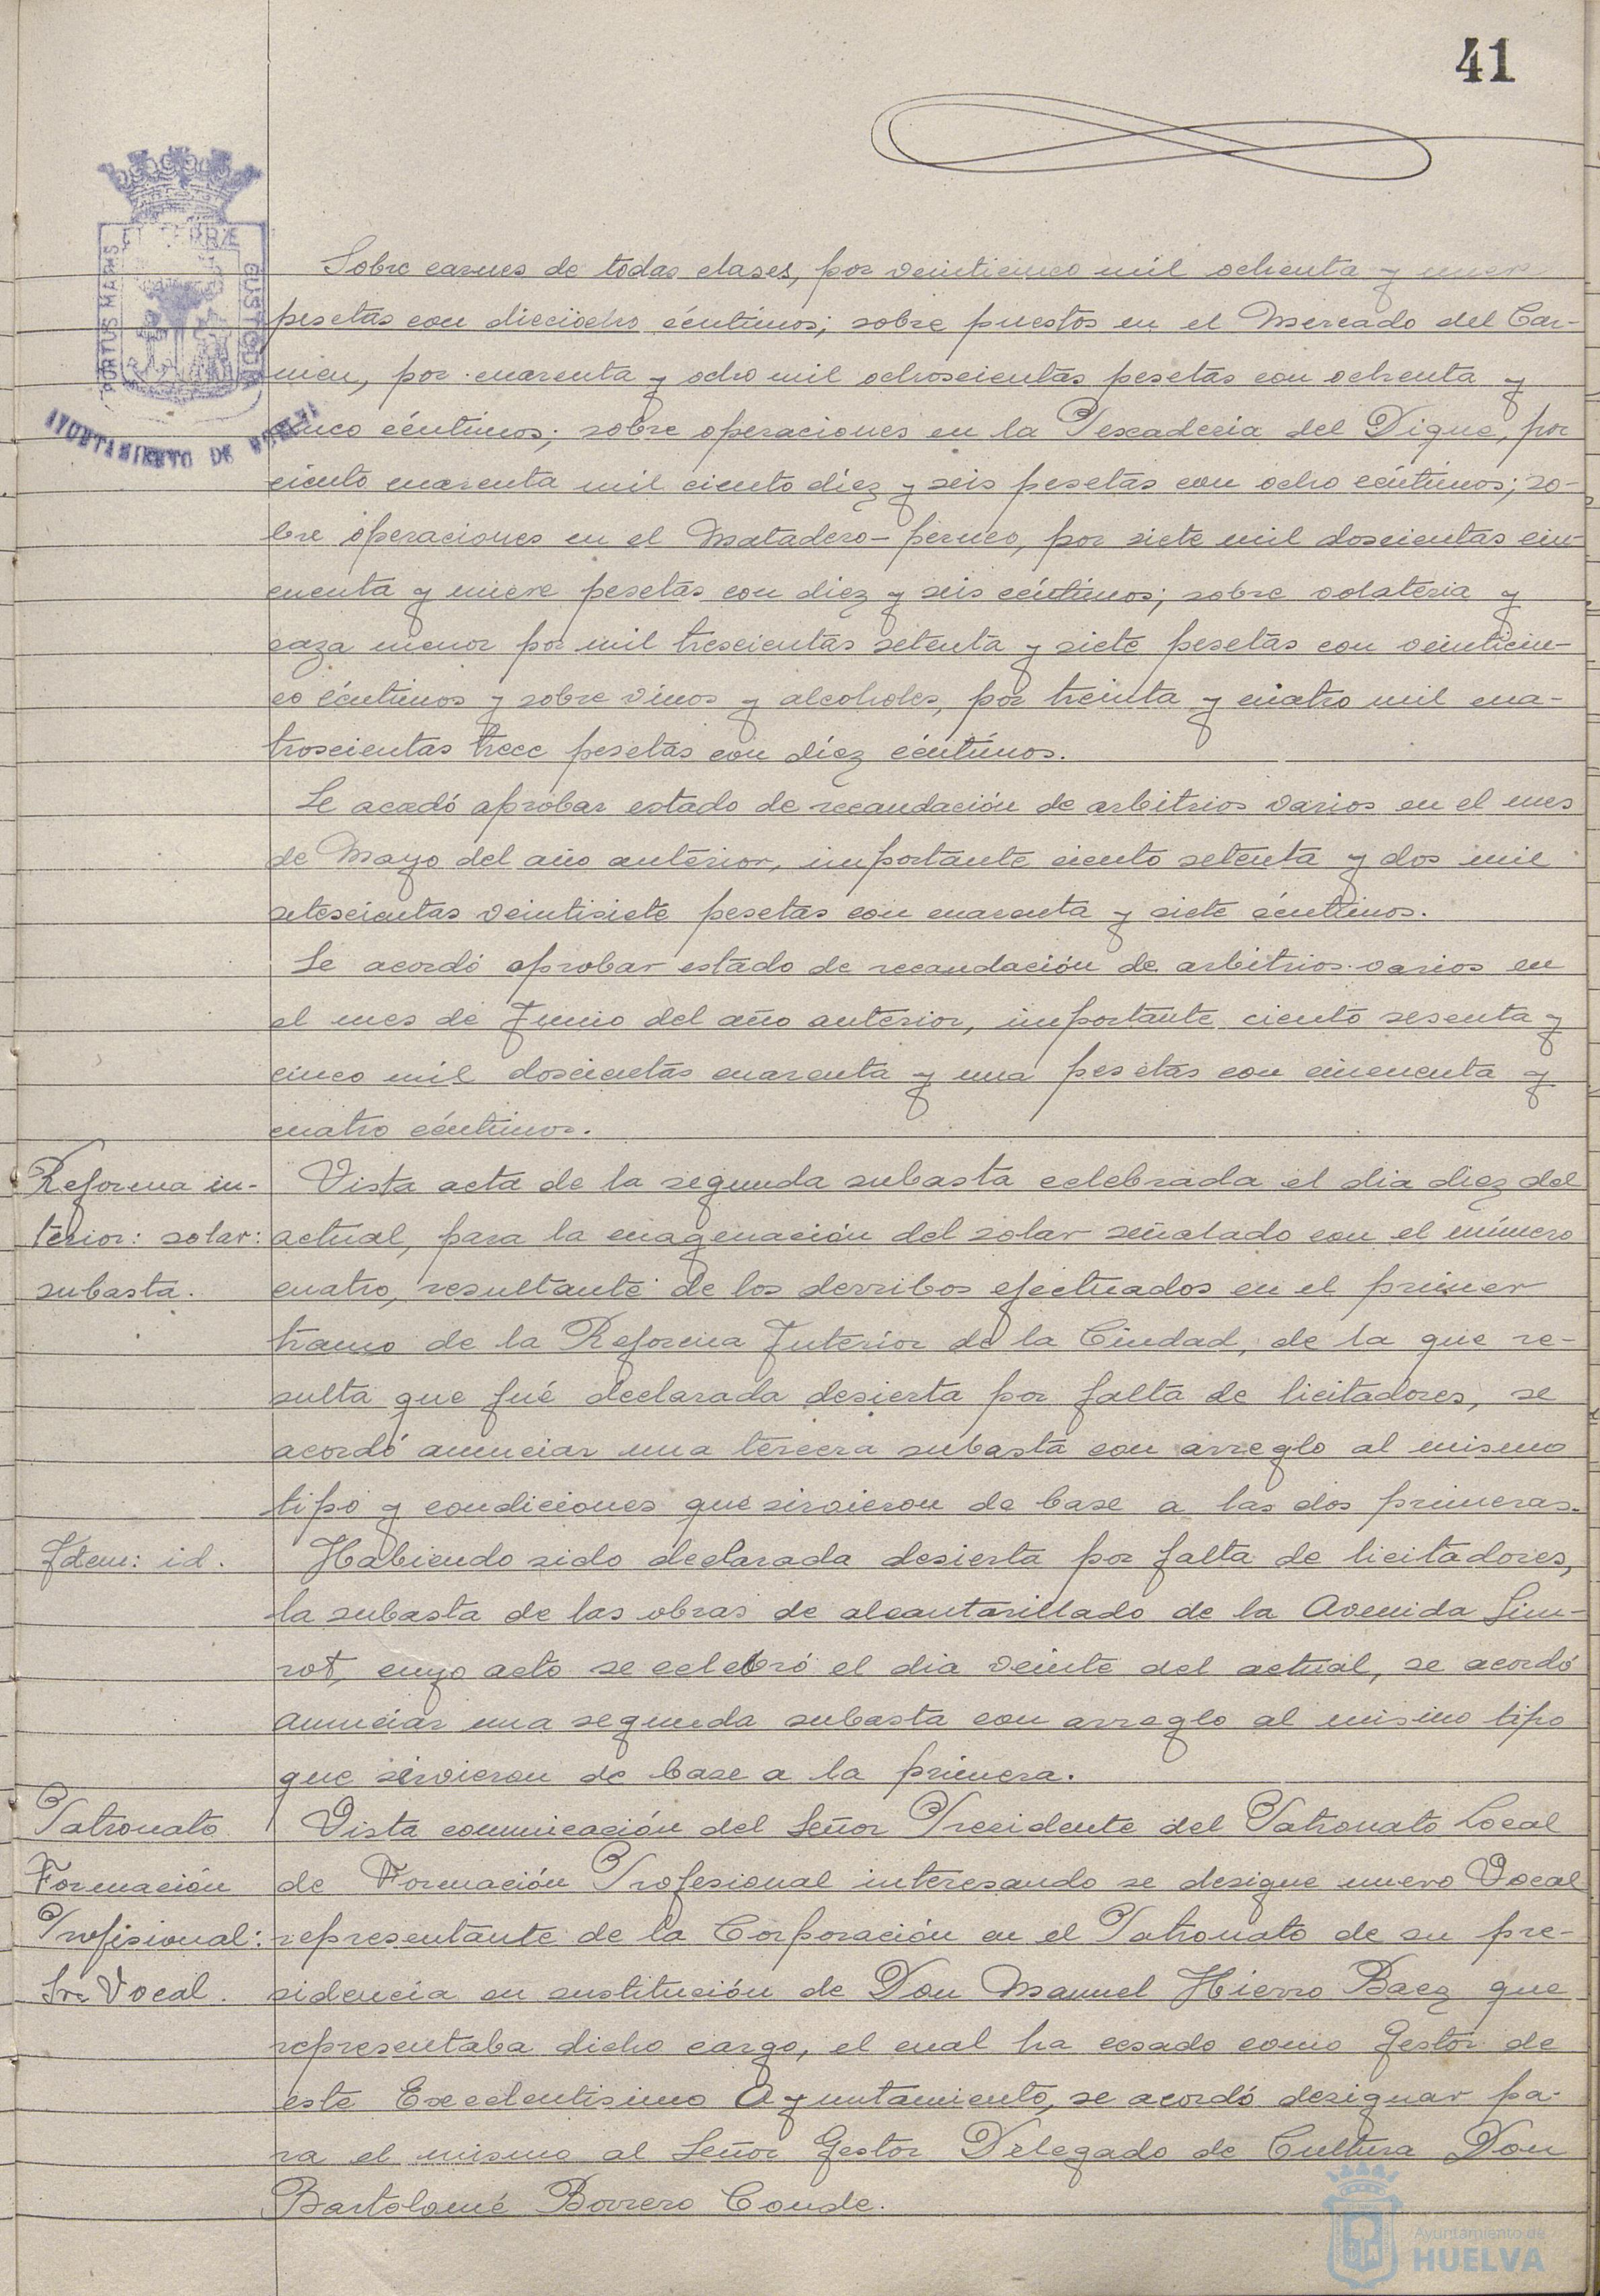 41
PORTUS MARIS
ET TERRÆ
CUSTODIA
AYUNTAMIENTO DE HUELVA
Sobre carnes de todas clases, por veinticinco mil ochenta y nueve
pesetas con dieciocho céntimos; sobre puestos en el Mercado del Car-
men, por cuarenta y ocho mil ochoscientas pesetas con ochenta y
cinco céntimos; sobre operaciones en la Pescaderia del Dique, por
ciento cuarenta mil ciento diez y seis pesetas con ocho céntimos; so-
bre operaciones en el Matadero-perneo, por siete mil doscientas cin-
cuenta y nueve pesetas con diez y seis céntimos; sobre volateria y
caza menor por mil trescientas setenta y siete pesetas con veinticin-
co céntimos y sobre vinos y alcoholes, por treinta y cuatro mil cua-
troscientas trece pesetas con diez céntimos.
Se acadó aprobar estado de recaudación de arbitrios varios en el mes
de Mayo del año anterior, importante ciento setenta y dos mil
setescientas veintisiete pesetas con cuarenta y siete céntimos.
Se acordó aprobar estado de recaudación de arbitrios varios en
el mes de Junio del año anterior, importante ciento sesenta y
cinco mil doscientas cuarenta y una pesetas con cincuenta y
cuatro céntimos.
Reforma in-
terior: solar:
subasta.
Vista acta de la segunda subasta celebrada el dia diez del
actual, para la enagenación del solar señalado con el número
cuatro, resultante de los derribos efectuados en el primer
tramo de la Reforma Interior de la Ciudad, de la que re-
sulta que fué declarada desierta por falta de licitadores, se
acordó anunciar una tercera subasta con arreglo al mismo
tipo y condiciones que sirvieron de base a las dos primeras.
Idem: id.
Habiendo sido declarada desierta por falta de licitadores,
la subasta de las obras de alcantarillado de la Avenida Sun-
rot, cuyo acto se celebró el dia veinte del actual, se acordó
anunciar una segunda subasta con arreglo al mismo tipo
que sirvieron de base a la primera.
Patronato
Formación
Profisional:
Sre Vocal.
Vista comunicación del Señor Presidente del Patronato Local
de Formación Profesional interesando se designe nuevo Vocal
representante de la Corporación en el Patronato de su pre-
sidencia en sustitución de Don Manuel Hierro Baez que
representaba dicho cargo, el cual ha cesado como Gestor de
este Excelentisimo Ayuntamiento, se acordó designar pa-
ra el mismo al Señor Gestor Delegado de Cultura Don
Bartolomé Borrero Conde.
Ayuntamiento de
HUELVA